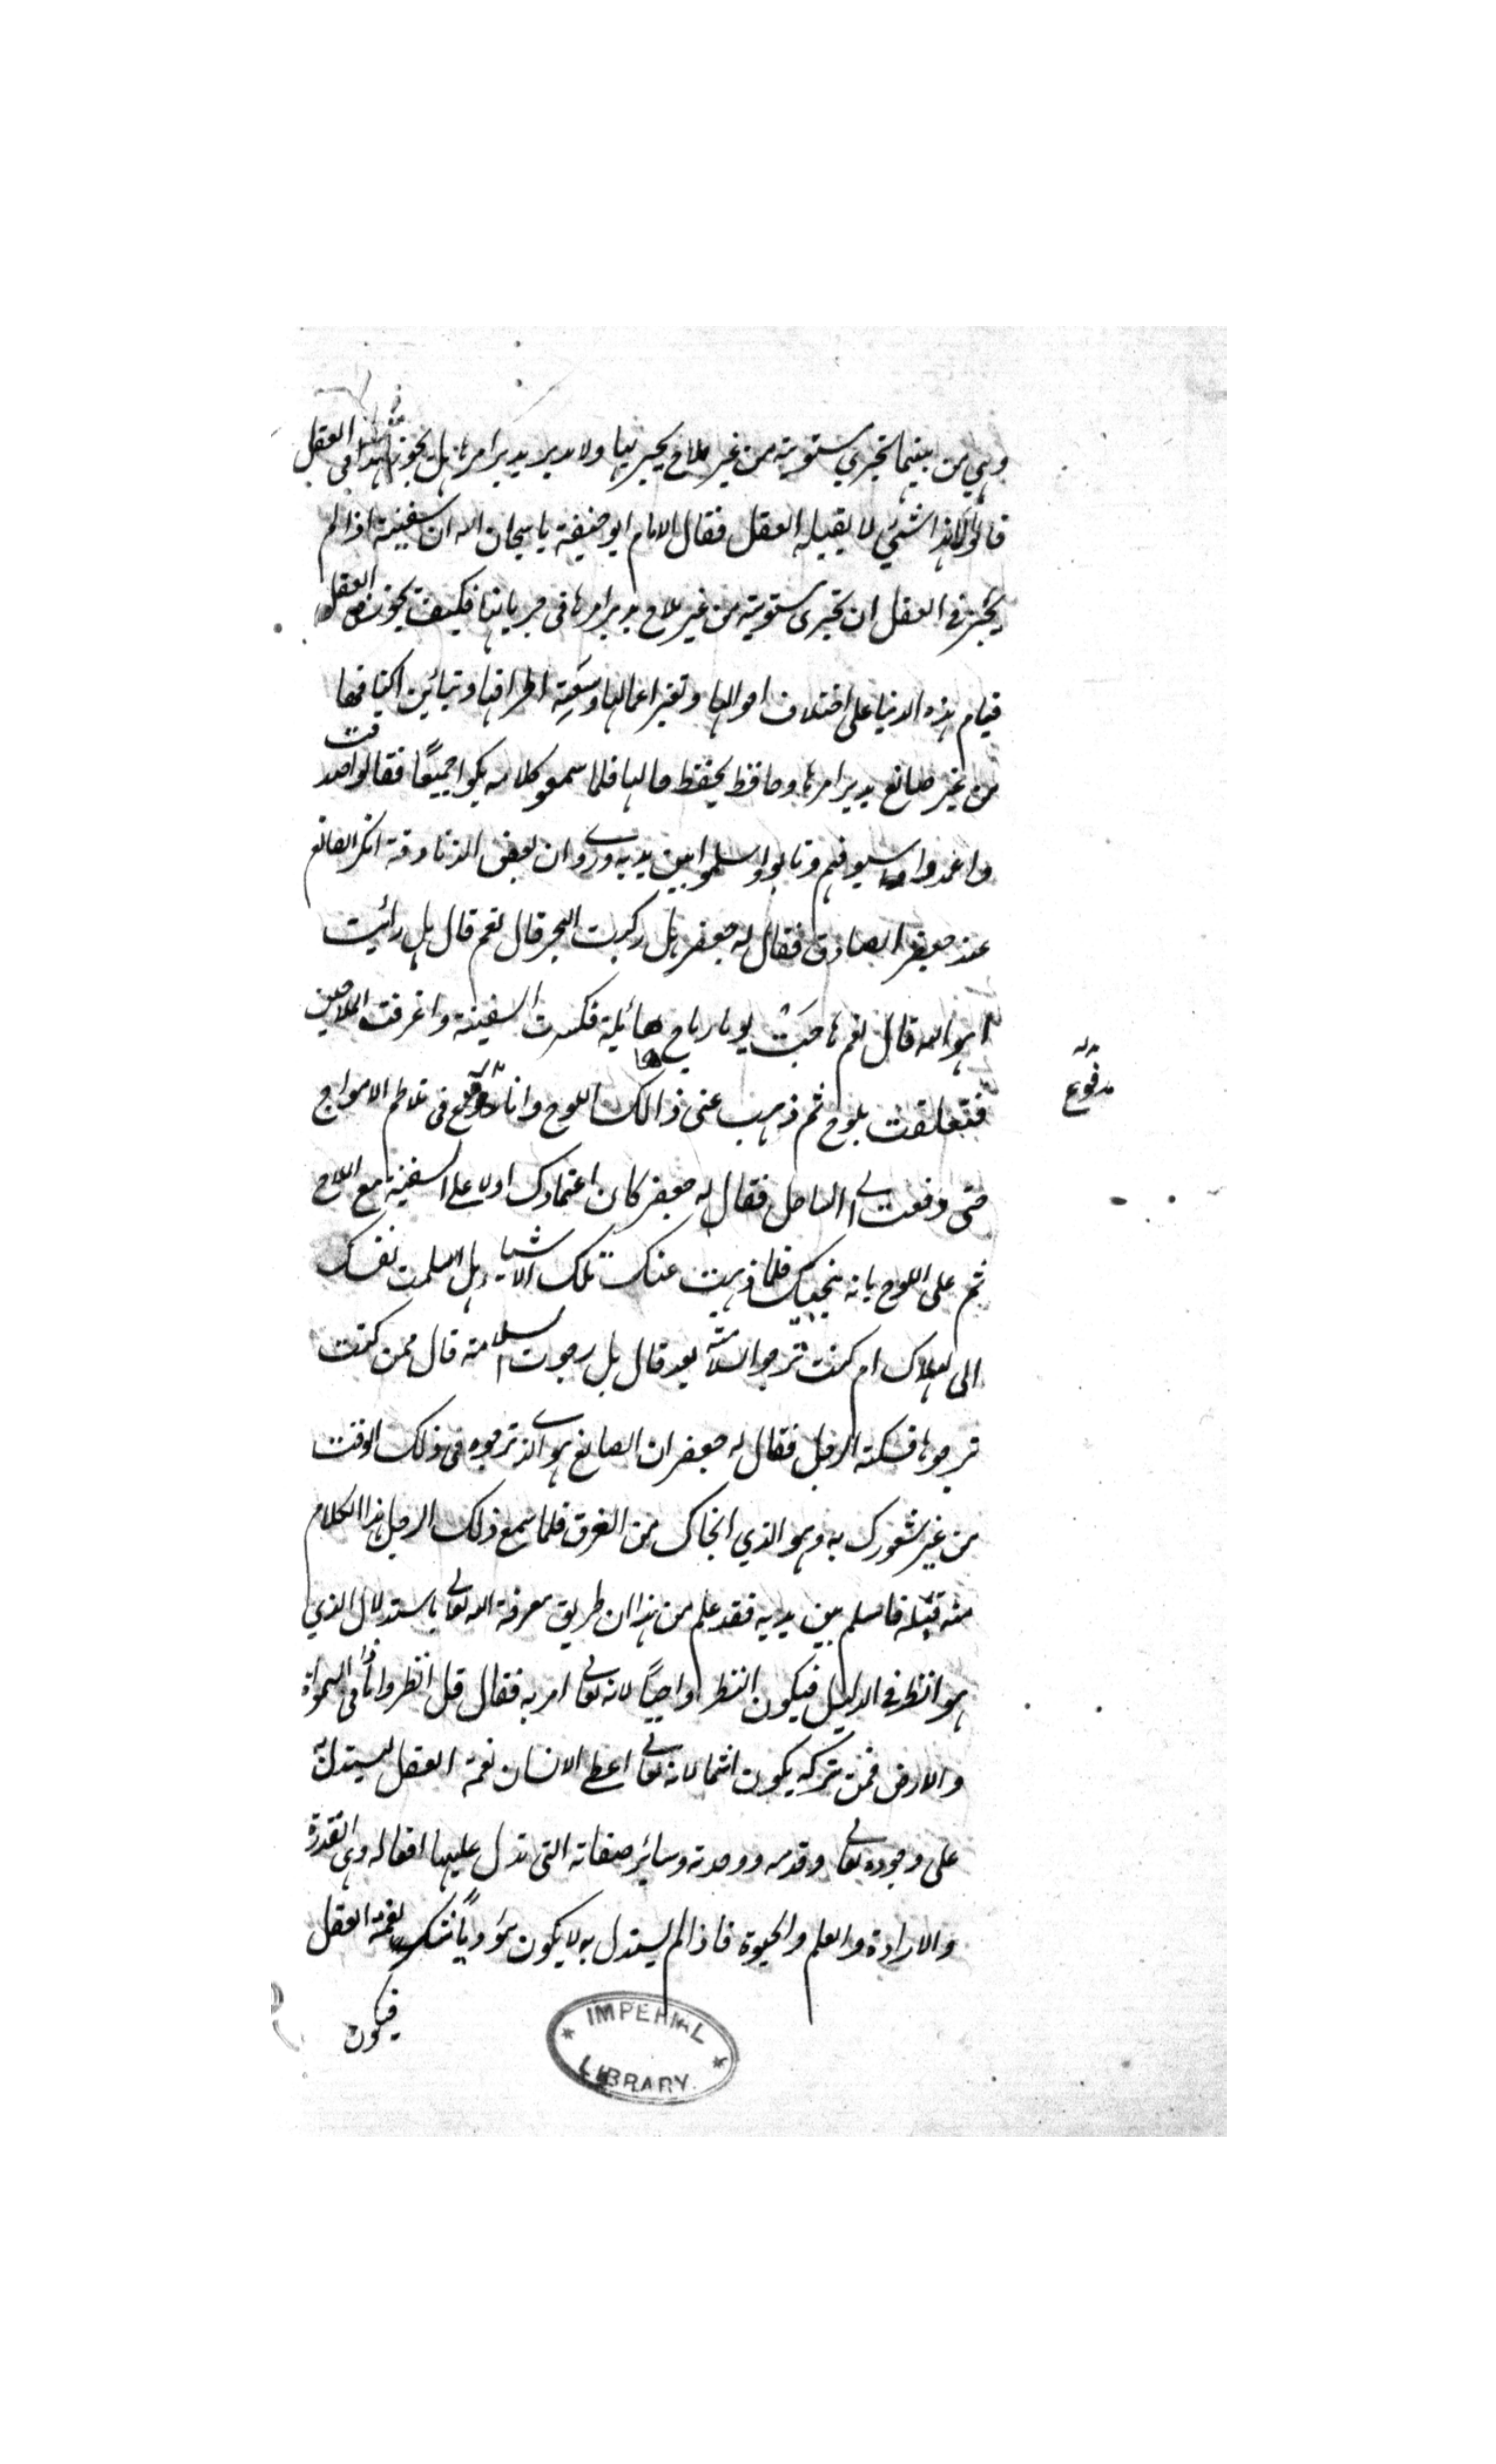 وهي من بينهما تجري مستوية من غير ملاح يجريها ولا مدبر يدبر امرها هل يجوز هذا فى العقل
قالوا لا هذا شيئ لا يقبله العقل فقال الامام ابو حنيفة يا سبحان الله ان سفينة اذا لم
يجز فى العقل ان تجرى مستوية من غير ملاح يدبر امرها فى جريانها فكيف يجوز فى العقل
قيام هذه الدنيا على اختلاف احوالها وتغير اعمالها وسَعِة اطرافها وتبائين اكنافها
من غير صانع يدبر امرها وحافظ يحفظ حالها فلما سمعو كلامه بكوا جميعًا فقالوا صدقت
واغمدوا سيوفهم وتابوا واسلموا بين يديه وروي ان بعض الذنادقة انكر الصانع
عند جعفر الصادق فقال له جعفر هل ركبت البحر قال نعم قال هل رائيت
اهواله قال نعم هاجَتْ يوما رياح هائلة فكسرت السفينة واغرقت الملاحين
فتعلقت بلوح ثم ذهب عنى ذالك اللوح وانا مدفوع فى تلاطم الامواج
مدفوع
حتى دفعت الى الساحل فقال له جعفر كان اعتمادك اولا على السفينة مع الملاح
ثم على اللوح بانه ينجيك فلما ذهبت عنك تلك الاشياء هل اسلمت نفسك
الى الهلاك ام كنت ترجوا السلامة بعد قال بل رجوت السلامة قال ممن كنت
ترجوها فسكته الرجل فقال له جعفر ان الصانع هو الذي ترجوه فى ذلك الوقت
من غير شعورك به وهو الذي انجاك من الغرق فلما سمع ذلك الرجل هذا الكلام
منه قبله فاسلم بين يديه فقد علم من هذا ان طريق معرفة الله تعالى باستدلال الذي
هو انظر فى الدليل فيكون النظر واجبًا لانه تعالى امر به فقال قل انظروا ماذا فى السموات
والارض فمن تركه يكون اثما لانه تعالى اعطى الانسان نعمة العقل ليستدل به
على وجوده تعالى وقدمه ووحدته وسائر صفاته التى تدل عليها افعاله وهى القدرة
والارادة والعلم والحيوة فاذا لم يستدل به لا يكون مؤديًا شكر نعمة العقل
فيكون
IMPERIAL LIBRARY